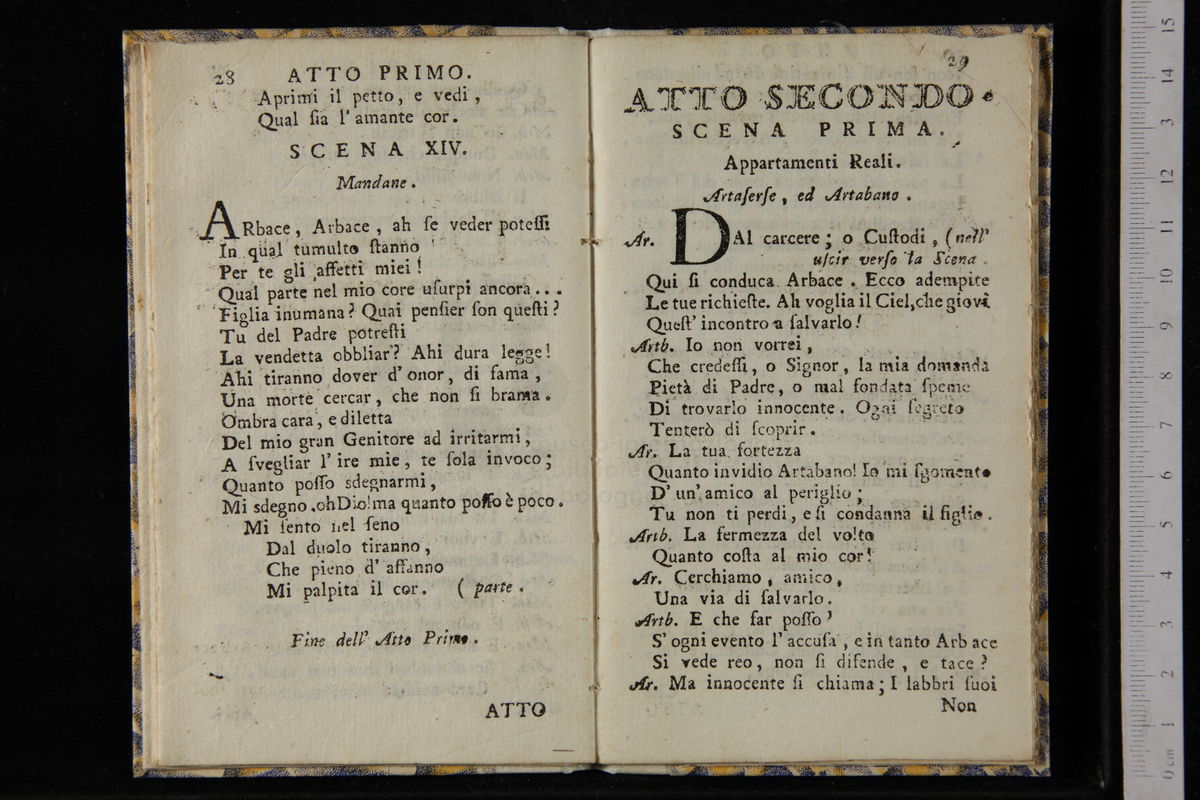 28 ATTO PRIMO.
Aprimi il petto, e vedi,
Qual ſia l'amante cor.
SCENA XIV.
Mandane.
ARbace, Arbace, ah ſe veder poteſſi
In qual tumulto ſtanno
Per te gli affetti miei!
Qual parte nel mio core uſurpi ancora...
Figlia inumana? Quai penſier ſon queſti?
Tu del Padre potreſti
La vendetta obbliar? Ahi dura legge!
Ahi tiranno dover d'onor, di fama,
Una morte cercar, che non ſi brama.
Ombra cara, e diletta
Del mio gran Genitore ad irritarmi,
A ſvegliar l'ire mie, te ſola invoco;
Quanto poſſo sdegnarmi,
Mi sdegno. oh Dio! ma quanto poſſo è poco.
Mi ſento nel ſeno
Dal duolo tiranno,
Che pieno d'affanno
Mi palpita il cor. (parte.
Fine dell' Atto Primo.
ATTO
29
ATTO SECONDO.
SCENA PRIMA.
Appartamenti Reali.
Artaſerſe, ed Artabano.
Ar. DAl carcere; o Cuſtodi, (nell'
uſcir verſo la Scena.
Qui ſi conduca Arbace. Ecco adempite
Le tue richieſte. Ah voglia il Ciel, che giovi
Queſt' incontro a ſalvarlo!
Artb. Io non vorrei,
Che credeſſi, o Signor, la mia domanda
Pietà di Padre, o mal fondata ſpeme
Di trovarlo innocente. Ogni ſegreto
Tenterò di ſcoprir.
Ar. La tua fortezza
Quanto invidio Artabano! Io mi ſgomento
D'un' amico al periglio;
Tu non ti perdi, e ſi condanna il figlio.
Artb. La fermezza del volto
Quanto coſta al mio cor!
Ar. Cerchiamo, amico,
Una via di ſalvarlo.
Artb. E che far poſſo?
S'ogni evento l'accuſa, e in tanto Arbace
Si vede reo, non ſi difende, e tace?
Ar. Ma innocente ſi chiama; I labbri ſuoi
Non
15
14
13
12
11
10
9
8
7
6
5
4
3
2
1
0 cm